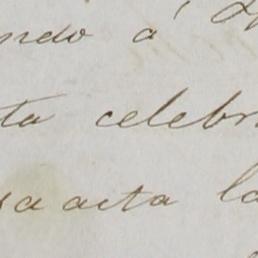 ndo á
ta celebr
sa acta la